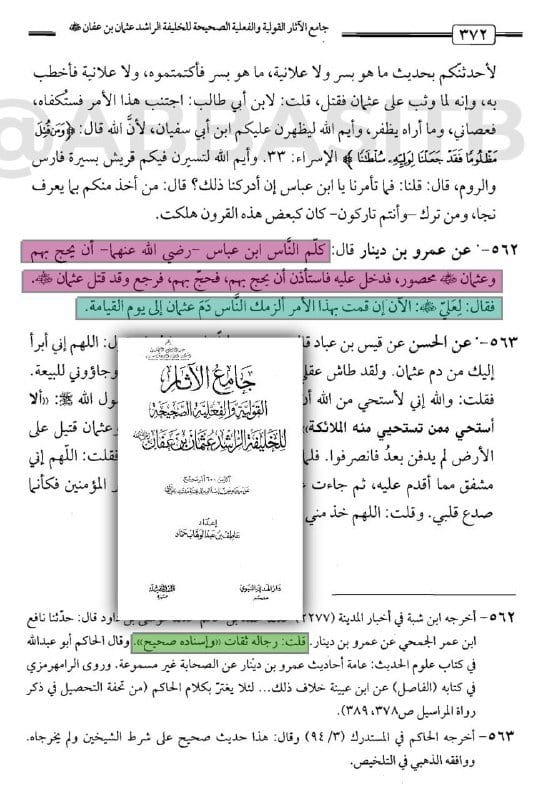 ٣٧٢
جامع الآثار القولية والفعلية الصحيحة للخليفة الراشد عثمان بن عفان ﷺ
لأحدثنّكم بحديث ما هو بسر ولا علانية، ما هو بسر فأكتمتموه، ولا علانية فأخطب
به، وإنه لما وثب على عثمان فقتل، قلت: لابن أبي طالب: اجتنب هذا الأمر فستُكفاه،
فعصاني، وما أراه يظفر، وأيم الله ليظهرن عليكم ابن أبي سفيان، لأنَّ الله قال: ﴿وَمَن قُتِلَ
مَظْلُومًا فَقَدْ جَعَلْنَا لِوَلِيِّهِ سُلْطَانًا﴾ الإسراء: ٣٣. وأيم الله لتسيرن فيكم قريش بسيرة فارس
والروم، قال: قلنا: فما تأمرنا يا ابن عباس إن أدركنا ذلك؟ قال: من أخذ منكم بما يعرف
نجا، ومن ترك -وأنتم تاركون- كان كبعض هذه القرون هلكت.
@ABBASITB
٥٦٢-٠ عن عمرو بن دينار قال: كلّم النَّاس ابن عباس -رضي الله عنهما- أن يحج بهم
وعثمان ﷺ محصور، فدخل عليه فاستأذن أن يحج بهم، فحجّ بهم، فرجع وقد قتل عثمان ﷺ.
فقال: لِعَليّ ﷺ: الآن إن قمت بهذا الأمر ألزمك النَّاس دَمَ عثمان إلى يوم القيامة.
٥٦٣-٠ عن الحسن عن قيس بن عباد قال
ول: اللهم إني أبرأ
إليك من دم عثمان. ولقد طاش عقلي
وجاؤوني للبيعة.
فقلت: والله إني لأستحي من الله أن
ول الله ﷺ: «ألا
أستحي ممن تستحيي منه الملائكة»
وعثمان قتيل على
الأرض لم يدفن بعدُ فانصرفوا. فلما
فقلت: اللّهم إني
مشفق مما أقدم عليه، ثم جاءت
المؤمنين فكأنما
صدع قلبي. وقلت: اللهم خذ مني
جامع الآثار
القولية والفعلية الصحيحة
للخليفة الراشد عثمان بن عفان
إعداد
عاطف بن عبد الوهاب حماد
٥٦٢- أخرجه ابن شبة في أخبار المدينة (٢٢٧٧)
داود قال: حدّثنا نافع
ابن عمر الجمحي عن عمرو بن دينار. قلت: رجاله ثقات «وإسناده صحيح». وقال الحاكم أبو عبدالله
في كتاب علوم الحديث: عامة أحاديث عمرو بن دينار عن الصحابة غير مسموعة. وروى الرامهرمزي
في كتابه (الفاصل) عن ابن عيينة خلاف ذلك... لئلا يغترّ بكلام الحاكم (من تحفة التحصيل في ذكر
رواة المراسيل ص٣٧٨، ٣٨٩).
٥٦٣- أخرجه الحاكم في المستدرك (٣/ ٩٤) وقال: هذا حديث صحيح على شرط الشيخين ولم يخرجاه.
ووافقه الذهبي في التلخيص.